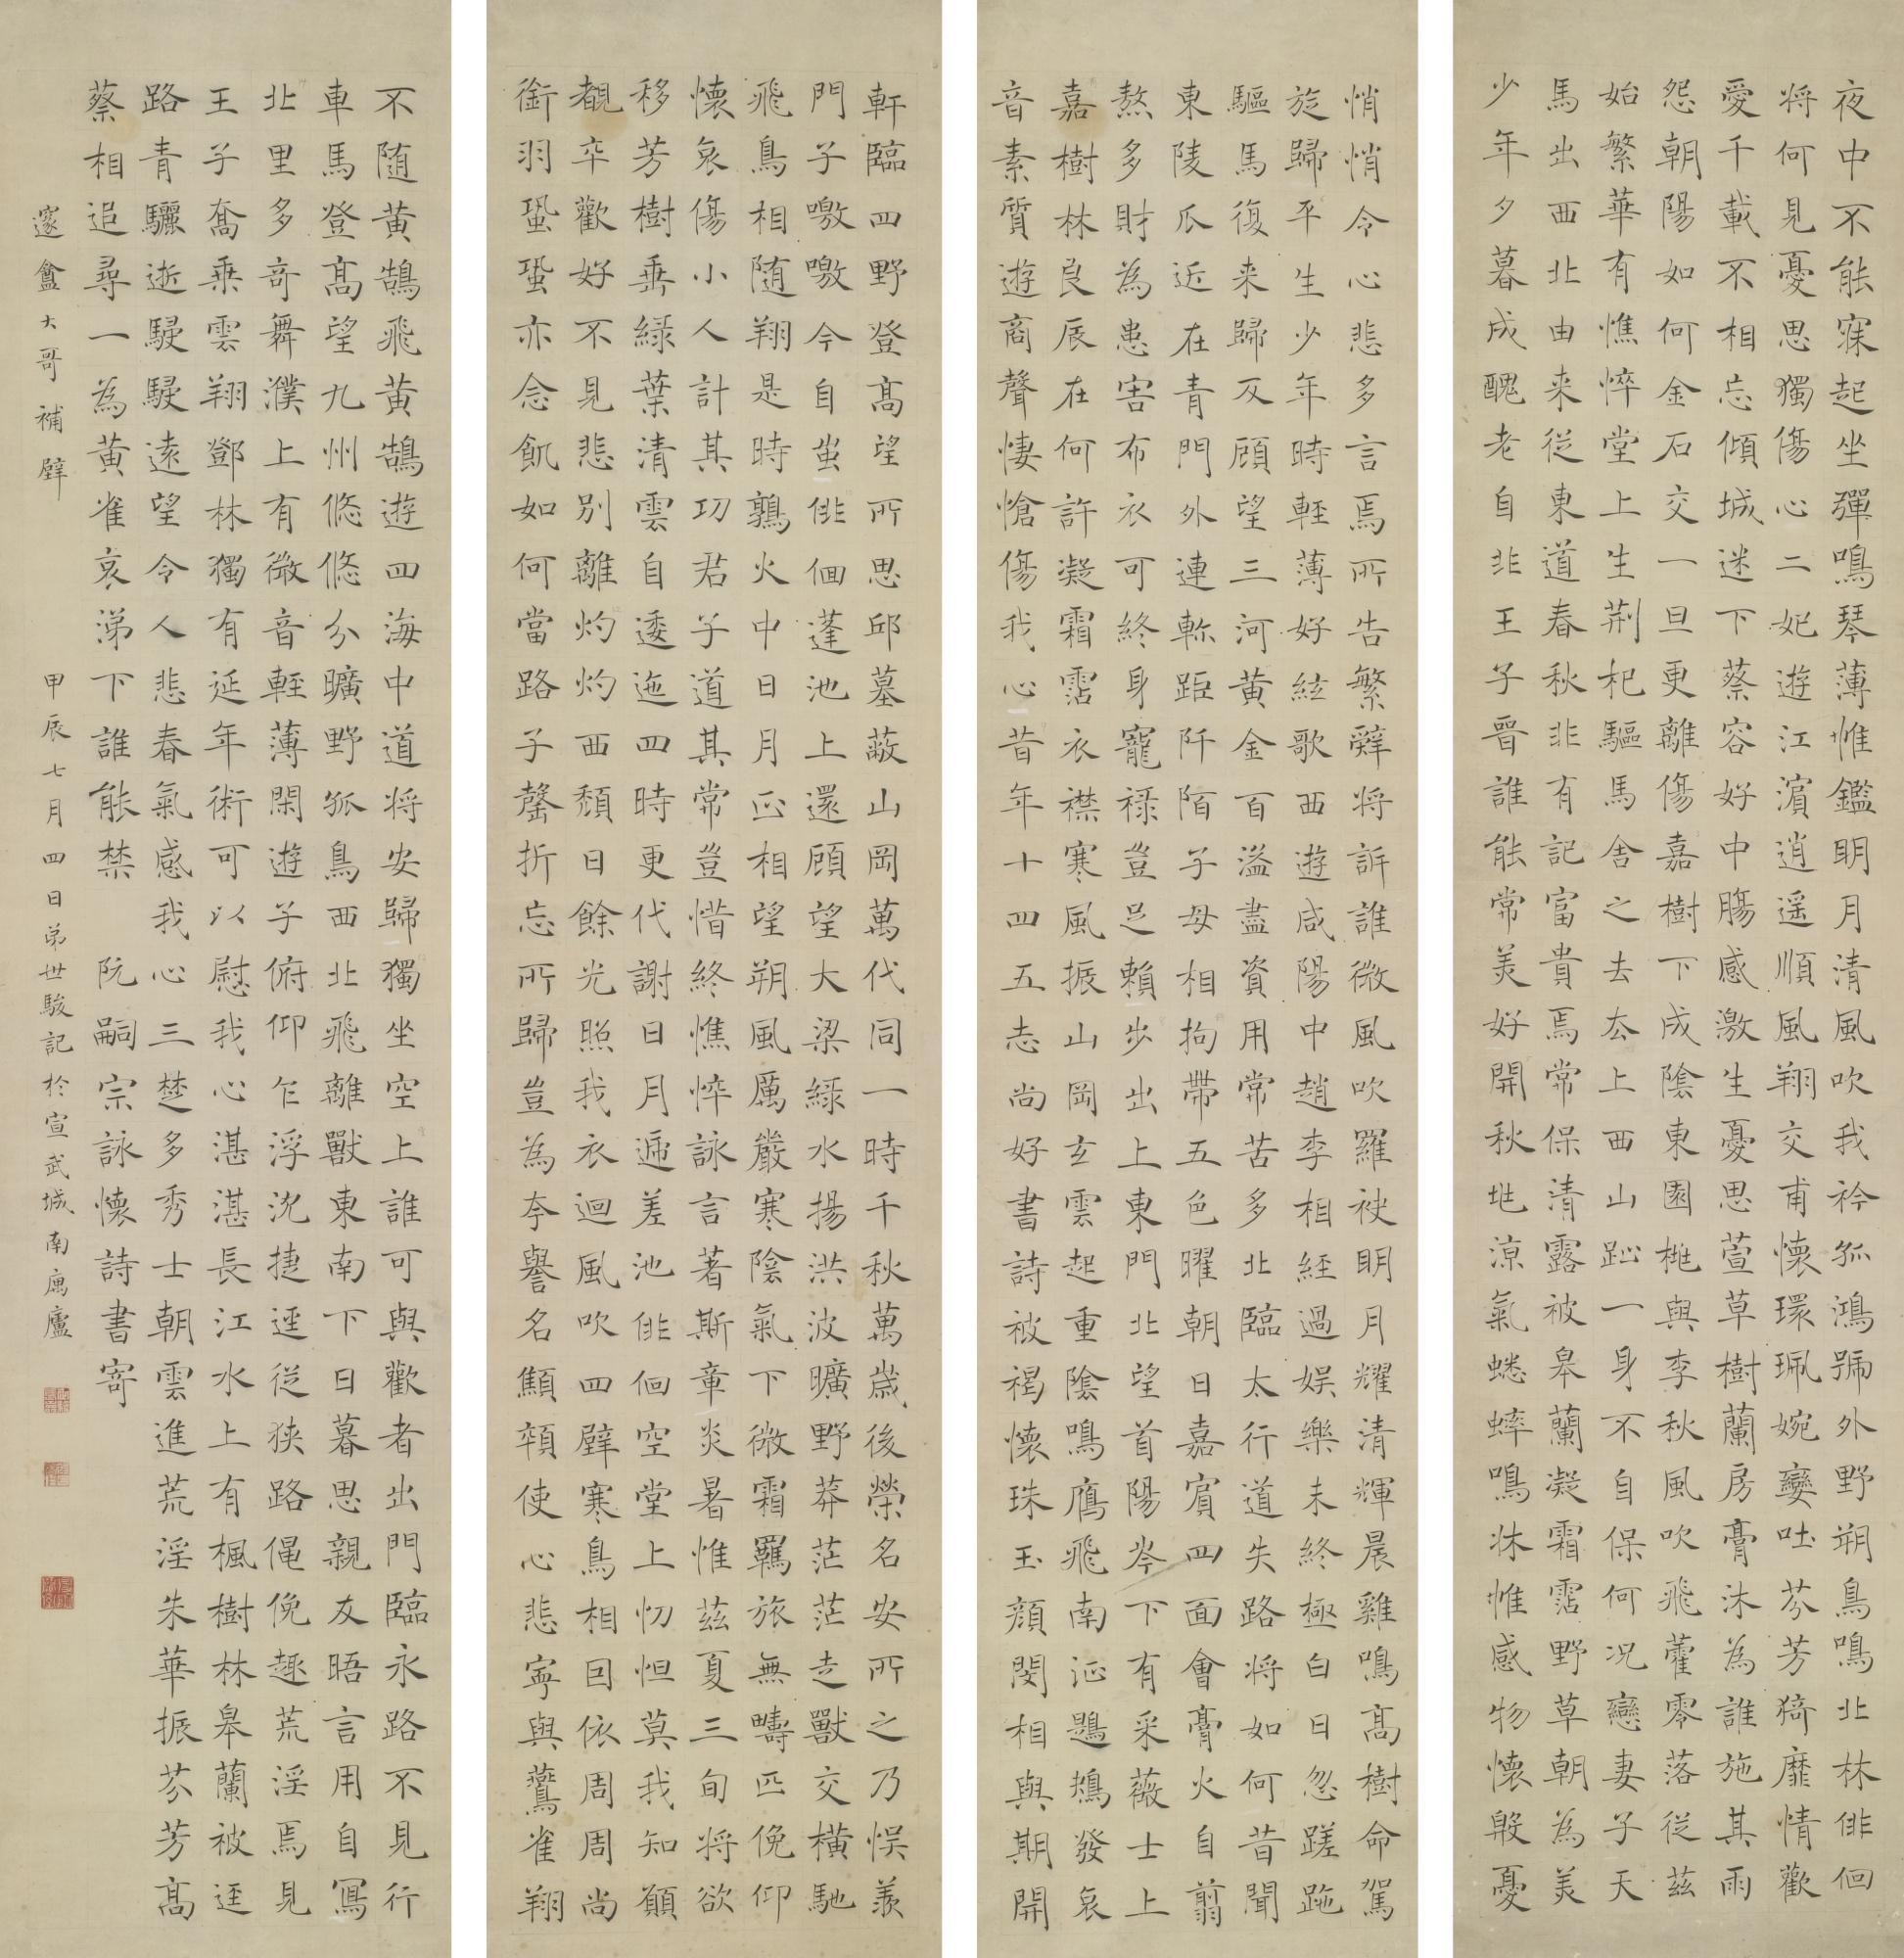 夜中不能寐起坐彈鳴琴薄惟鑑明月清風吹我衿孤鴻號外野朔鳥鳴北林俳佪
将何見憂思獨傷心二妃遊江濵逍遥順風翔交甫懷環珮婉孌吐芬芳猗靡情歡
愛千載不相忘傾城迷下蔡容好中腸感激生憂思萱草樹蘭房膏沐為誰施其雨
怨朝陽如何金石交一旦更離傷嘉樹下成陰東園桃與李秋風吹飛藿零落從茲
始繁華有憔悴堂上生荆杞驅馬舍之去去上西山趾一身不自保何况戀妻子天
馬出西北由来從東道春秋非有記富貴焉常保清露被皋蘭凝霜霑野草朝為美
少年夕暮成醜老自非王子晉誰能常美好開秋兆涼氣蟋蟀鳴牀惟感物懷殷憂
悄悄令心悲多言焉所告繁辭将訴誰微風吹羅袂明月耀清輝晨雞鳴髙樹命駕
旋歸平生少年時輕薄好絃歌西遊咸陽中趙李相經過娱樂未終極白日忽蹉跎
驅馬復来歸反顧望三河黄金百溢盡資用常苦多北臨太行道失路将如何昔聞
東陵瓜近在青門外連畛距阡陌子母相拘帶五色曜朝日嘉賔四面會膏火自翦
熬多財為患害布衣可終身寵禄豈足賴步出上東門北望首陽岑下有采薇士上
嘉樹林良辰在何許凝霜霑衣襟寒風振山岡玄雲起重陰鳴鴈飛南征鶗鴂發哀
音素質遊商聲悽愴傷我心昔年十四五志尚好書詩被褐懷珠玉顔閔相與期開
軒臨四野登髙望所思邱墓蔽山岡萬代同一時千秋萬歲後榮名安所之乃悮羨
門子噭噭今自蚩俳佪蓬池上還顧望大梁緑水揚洪波曠野莽茫茫走獸交橫馳
飛鳥相随翔是時鶉火中日月正相望朔風厲嚴寒陰氣下微霜羈旅無疇匹俛仰
懷哀傷小人計其功君子道其常豈惜終憔悴詠言著斯章炎暑惟茲夏三旬将欲
移芳樹垂緑葉清雲自逶迤四時更代謝日月遞差池俳佪空堂上忉怛莫我知願
覩卒歡好不見悲别離灼灼西頽日餘光照我衣迴風吹四壁寒鳥相因依周周尚
銜羽蛩蛩亦念飢如何當路子磬折忘所歸豈為夸譽名顦顇使心悲寧與鷰雀翔
不随黄鵠飛黄鵠遊四海中道将安歸獨坐空上誰可與歡者出門臨永路不見行
車馬登髙望九州悠悠分曠野孤鳥西北飛離獸東南下日暮思親友晤言用自寫
北里多竒舞濮上有微音輕薄閑遊子俯仰乍浮沈捷逕從狹路僶俛趣荒淫焉見
王子喬乘雲翔鄧林獨有延年術可以慰我心湛湛長江水上有楓樹林皋蘭被逕
路青驪逝駸駸遠望令人悲春氣感我心三楚多秀士朝雲進荒淫朱華振芬芳髙
蔡相追尋一為黄雀哀涕下誰能禁　阮嗣宗詠懷詩書寄
邃盦大哥補壁　甲辰七月四日弟世駿記於宣武城南寓廬